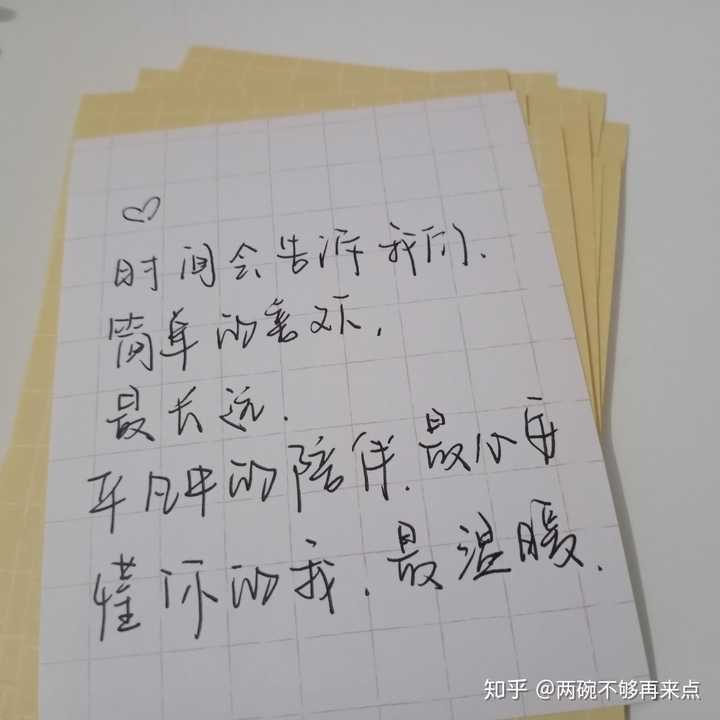 时间会告诉我们.
简单的喜欢,
最长远.
平凡中的陪伴.最心安
懂你的我.最温暖.
知乎 @两碗不够再来点